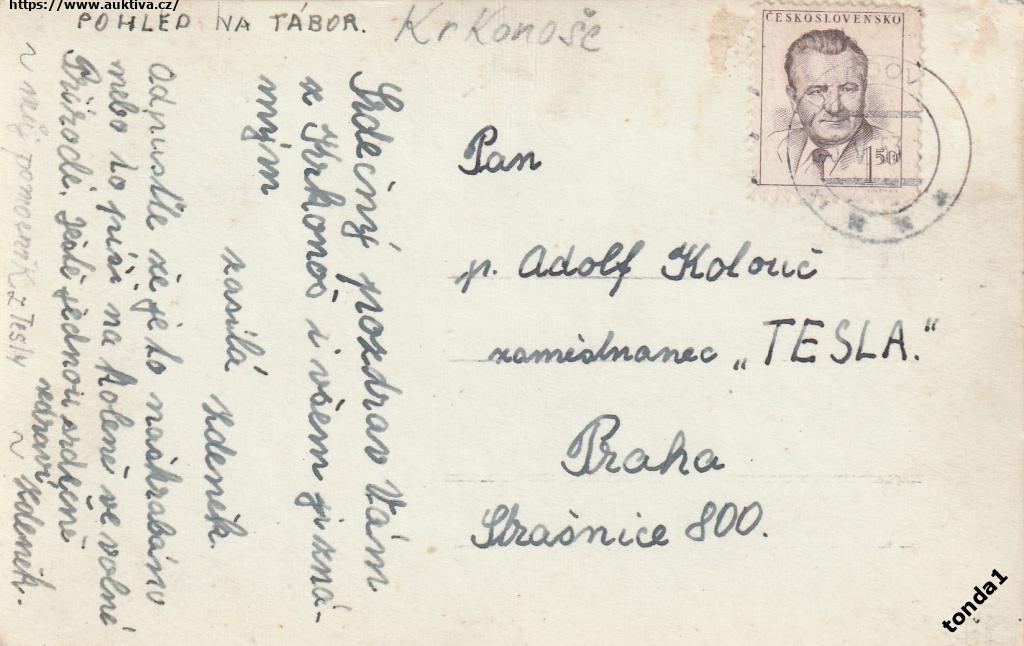 https://www.auktiva.cz/
POHLED NA TÁBOR.
Krkonoše
ČESKOSLOVENSKO
1.50
Srdečný pozdrav Vám
z Krkonoš i všem zná-
mým
zasílá Zdeněk.
Odpusťte že je to naškrabáno
nebo to píši na koleně ve volné
Přírodě. Ještě jednou srdečně
zdraví
~ Zdeněk.
~ můj pomocník z Tesly
Pan
p. Adolf Kolouč
zaměstnanec „TESLA.“
Praha
Strašnice 800.
tonda1